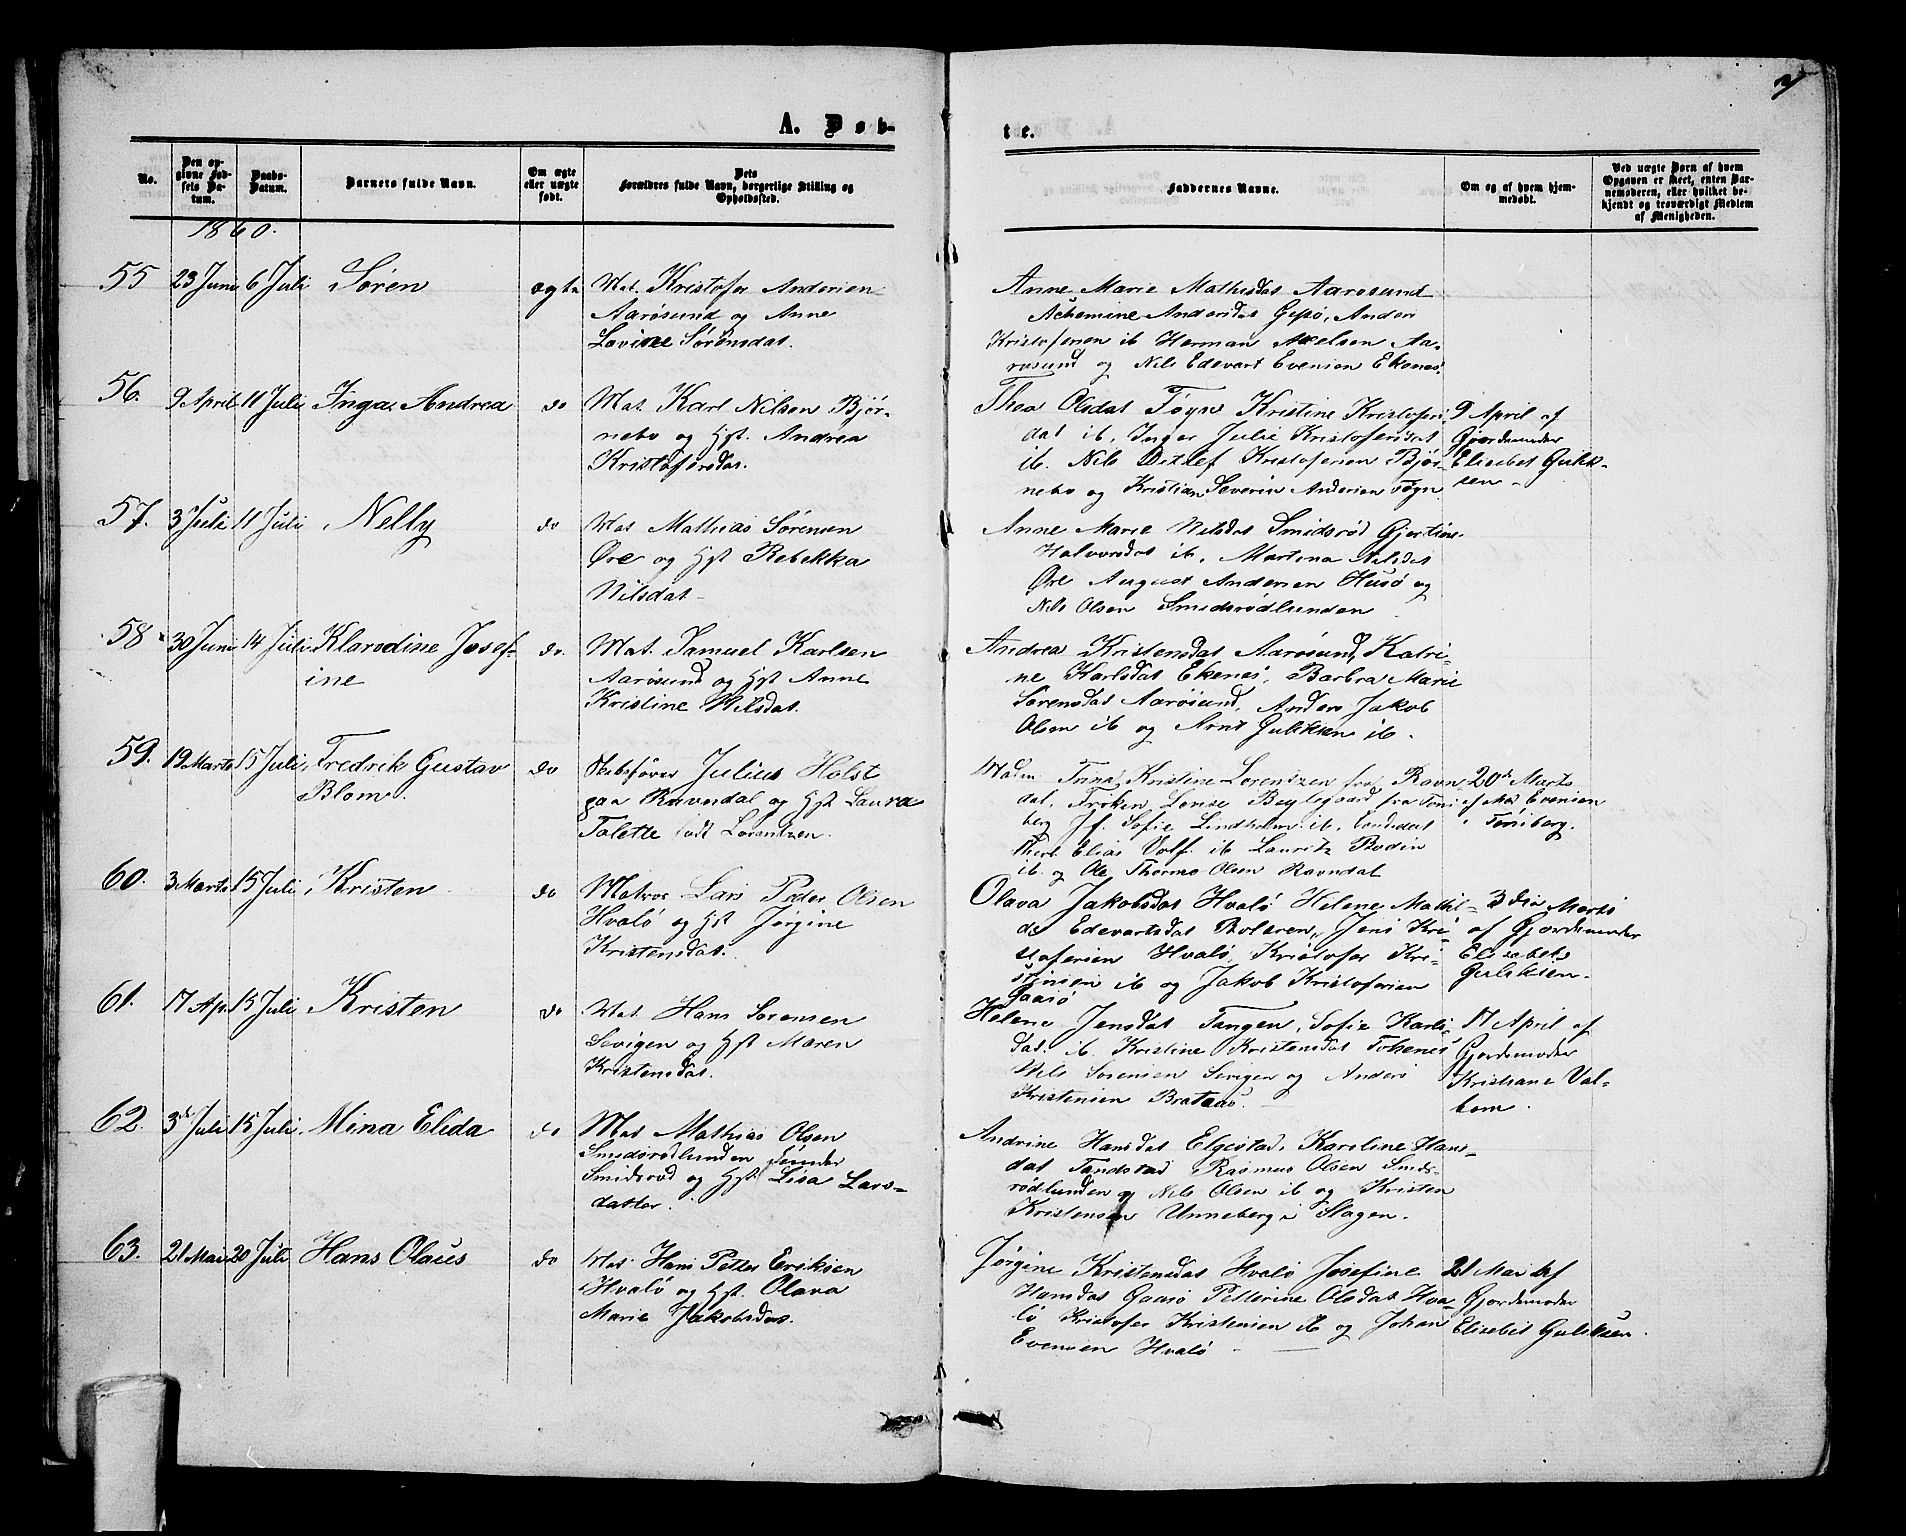 A. Døb-
te.
No.
Den op-
givne Fød-
sels Da-
tum.
Daabs-
Datum.
Barnets fulde Navn.
Om ægte
eller uægte
født.
Dets
Forældres fulde Navn, borgerlige Stilling og
Opholdssted.
Faddernes Navne.
Om og af hvem hjem-
medøbt.
Ved uægte Børn af hvem
Opgaven er skeet, enten Bar-
nemoderen, eller hvilket be-
kjendt og troværdigt Medlem
af Menigheden.
1860.
55 23 Juni 6 Juli Søren ægte Mat. Kristofer Andersen
Aarøsund og Anne
Lovine Sørensdat.
Anne Marie Mathisdat Aarøsund
Andersdat Gipø, Anders
Kristofersen ib Herman Axelsen Aa-
røsund og Nils Edevart Evensen Ekenes.
56. 9 April 11 Juli Inga Andrea do Mat. Karl Nilsen Bjør-
nebo og Hst. Andrea
Kristofersdat.
Thea Olsdat Føgn Kristine Kristofers-
dat ib, Inger Julie Kristofersdat
ib. Nils Ditlef Kristofersen Bjør-
nebo og Kristian Severin Andersen Føgn
9 April af
Gjordemoder
Elisebet Gulik-
sen
57. 3 Juli 11 Juli Nelly do Mat Mathias Sørensen
Øre og Hst Rebekka
Nilsdat
Anne Marie Nilsdat Smidsrød Gjertine
Halvorsdat ib, Martina Nilsdat
Øre August Andersen Husø og
Nils Olsen Smidsrødlunden
58 30 Juni 14 Juli Klavdine Josef-
ine do. Mat. Samuel Karlsen
Aarøsund og Hst Anne
Kristine Nilsdat.
Andrea Kristensdat Aarøsund, Katri-
ne Karlsdat Ekenes, Barbra Marie
Sørensdat Aarøsund, Anders Jakob
Olsen ib og Arnt Guliksen ib.
59. 19 Marts 15 Juli Fredrik Gustav
Blom. do Skibsfører Julius Holst
paa Ravndal og Hst Laura
Talette født Lorentzen.
Madm Trina Kristine Lorentzen fra Ravn-
dal, Frøken Lovise Beylegaard fra Tøns-
berg Jf. Sofie Lindholm ib, Landidat
Elias Volf ib Lauritz Bodin
ib. og Ole Thormo Olsen Ravndal
20de Marts
af Mad Evensen
Tønsberg.
60. 3 Marts 15 Juli Kristen do Matros Lars Peder Olsen
Hvalø og Hst Jørgine
Kristensdat.
Olava Jakobsdat Hvalø Helene Mathil-
de Edevartsdat Bolæren, Jens Kri-
stofersen Hvalø, Kristofer Kri-
stensen ib og Jakob Kristofersen
Gaasø
3 die Marts
af Gjordemoder
Elisebet
Guliksen.
61. 17 Ap. 15 Juli Kristen do Mat. Hans Sørensen
Sevigen og Hst Maren
Kristensdat.
Helene Jensdat Tangen, Sofie Karls-
dat. ib. Kristine Kristensdat Torsnes
Nils Sørensen Sevigen og Anders
Kristensen Brataas.
17 April af
Gjordemoder
Kristiane Val-
bom.
62. 3de Juli 15 Juli Mina Elida do Mat Mathias Olsen
Smidsrødlunden under
Smidsrød og Hst Lisa Lars-
datter.
Andrine Hansdat Elgestad, Karoline Hans-
dat Tandstad Rasmus Olsen Smids-
rødlunden og Nils Olsen ib og Kristen
Kristensen Unneberg i Slagen.
63. 21 Mai 20 Juli Hans Olaus do Mat. Hans Petter Eriksen
Hvalø og Hst. Olava
Marie Jakobsdat.
Jørgine Kristensdat Hvalø Josefine
Hansdat Gaasø Petterine Olsdat Hva-
lø Kristofer Kristensen ib og Johan
Evensen Hvalø
21 Mai af
Gjordemoder
Elisebet Guliksen.